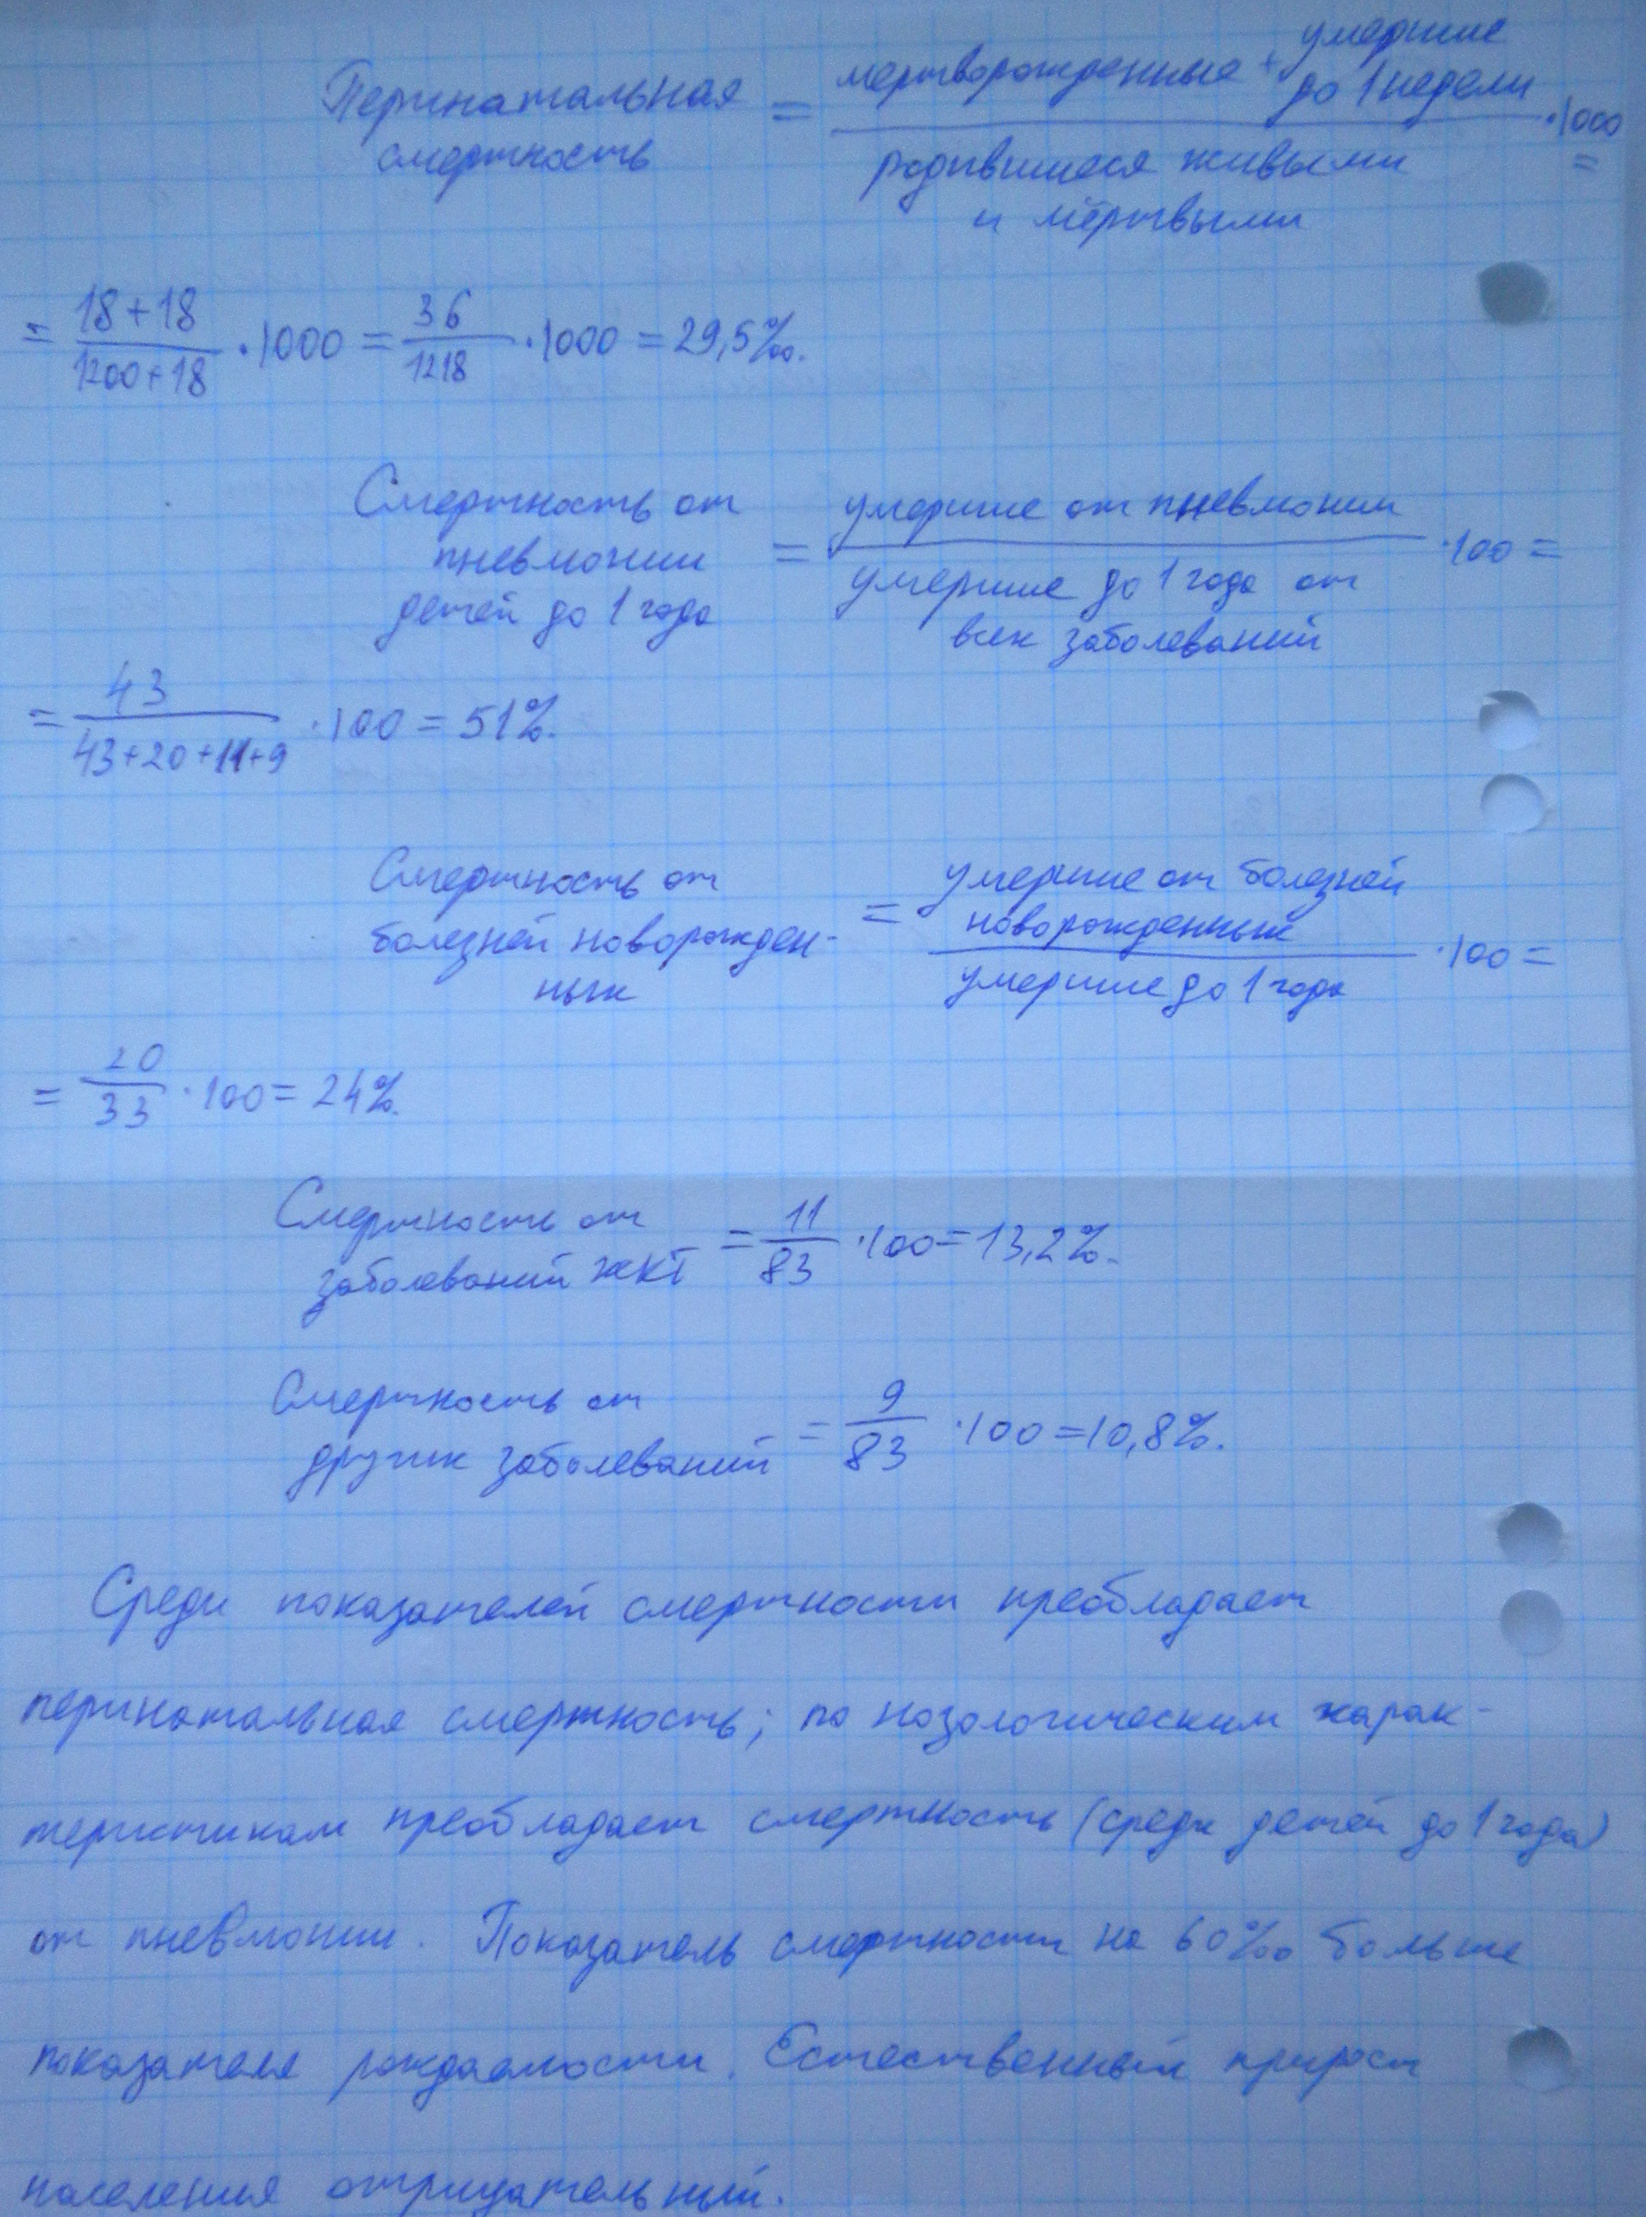 Перинатальная смертность = мертворожденные + умершие до 1 недели / родившиеся живыми и мёртвыми · 1000 =
= 18+18 / 1200+18 · 1000 = 36 / 1218 · 1000 = 29,5‰.
Смертность от пневмонии детей до 1 года = умершие от пневмонии / умершие до 1 года от всех заболеваний · 100 =
= 43 / 43+20+11+9 · 100 = 51%.
Смертность от болезней новорожден-ных = умершие от болезней новорожденные / умершие до 1 года · 100 =
= 20 / 33 · 100 = 24%.
Смертность от заболеваний ЖКТ = 11 / 83 · 100 = 13,2%.
Смертность от других заболеваний = 9 / 83 · 100 = 10,8%.
Среди показателей смертности преобладает
перинатальная смертность; по нозологическим харак-
теристикам преобладает смертность (среди детей до 1 года)
от пневмонии. Показатель смертности на 60‰ больше
показателя рождаемости. Естественный прирост
населения отрицательный.